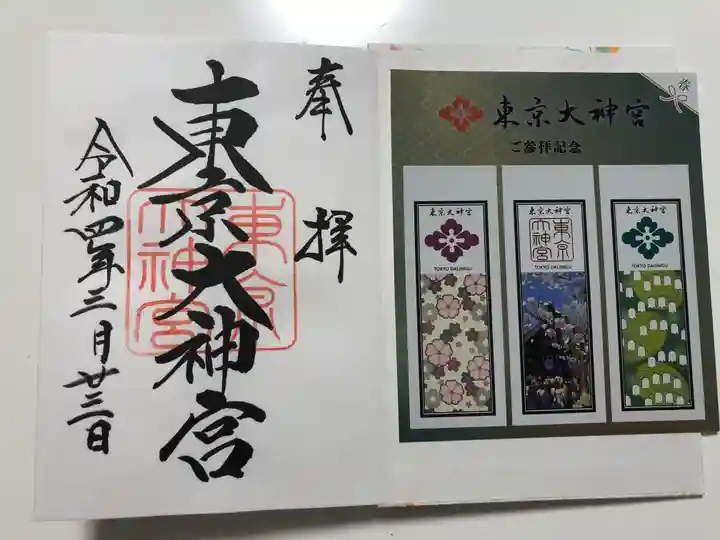 奉拝
東京大神宮
東京大神宮
令和四年三月廿三日
東京大神宮
ご参拝記念
東京大神宮
TOKYO DAIJINGU
東京大神宮
東京大神宮
TOKYO DAIJINGU
東京大神宮
TOKYO DAIJINGU